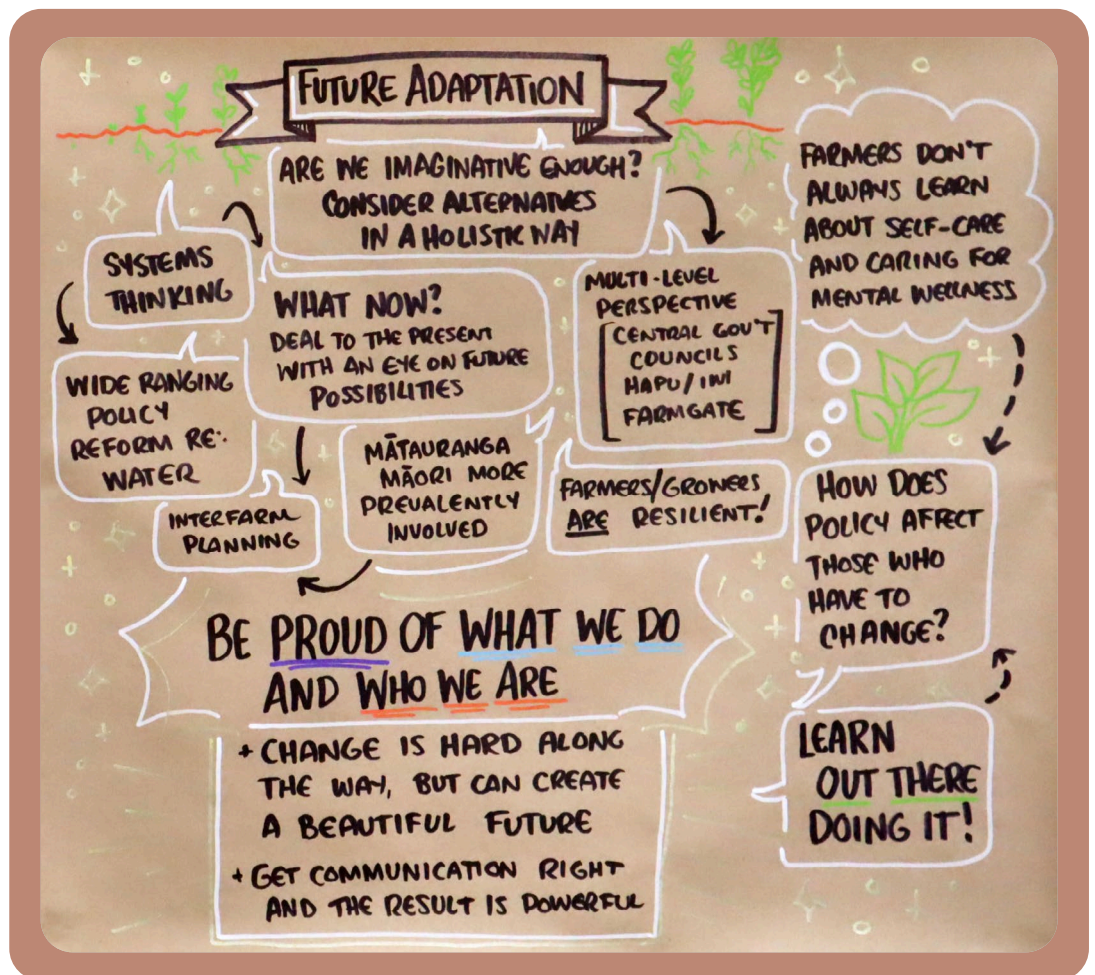 FUTURE ADAPTATION
ARE WE IMAGINATIVE ENOUGH?
CONSIDER ALTERNATIVES
IN A HOLISTIC WAY
SYSTEMS
THINKING
WIDE RANGING
POLICY
REFORM RE:
WATER
INTERFARM
PLANNING
WHAT NOW?
DEAL TO THE PRESENT
WITH AN EYE ON FUTURE
POSSIBILITIES
MĀTAURANGA
MĀORI MORE
PREVALENTLY
INVOLVED
MULTI-LEVEL
PERSPECTIVE
[CENTRAL GOV'T
COUNCILS
HAPU/IWI
FARMGATE]
FARMERS/GROWERS
ARE RESILIENT!
FARMERS DON'T
ALWAYS LEARN
ABOUT SELF-CARE
AND CARING FOR
MENTAL WELLNESS
HOW DOES
POLICY AFFECT
THOSE WHO
HAVE TO
CHANGE?
LEARN
OUT THERE
DOING IT!
BE PROUD OF WHAT WE DO
AND WHO WE ARE
+ CHANGE IS HARD ALONG
THE WAY, BUT CAN CREATE
A BEAUTIFUL FUTURE
+ GET COMMUNICATION RIGHT
AND THE RESULT IS POWERFUL